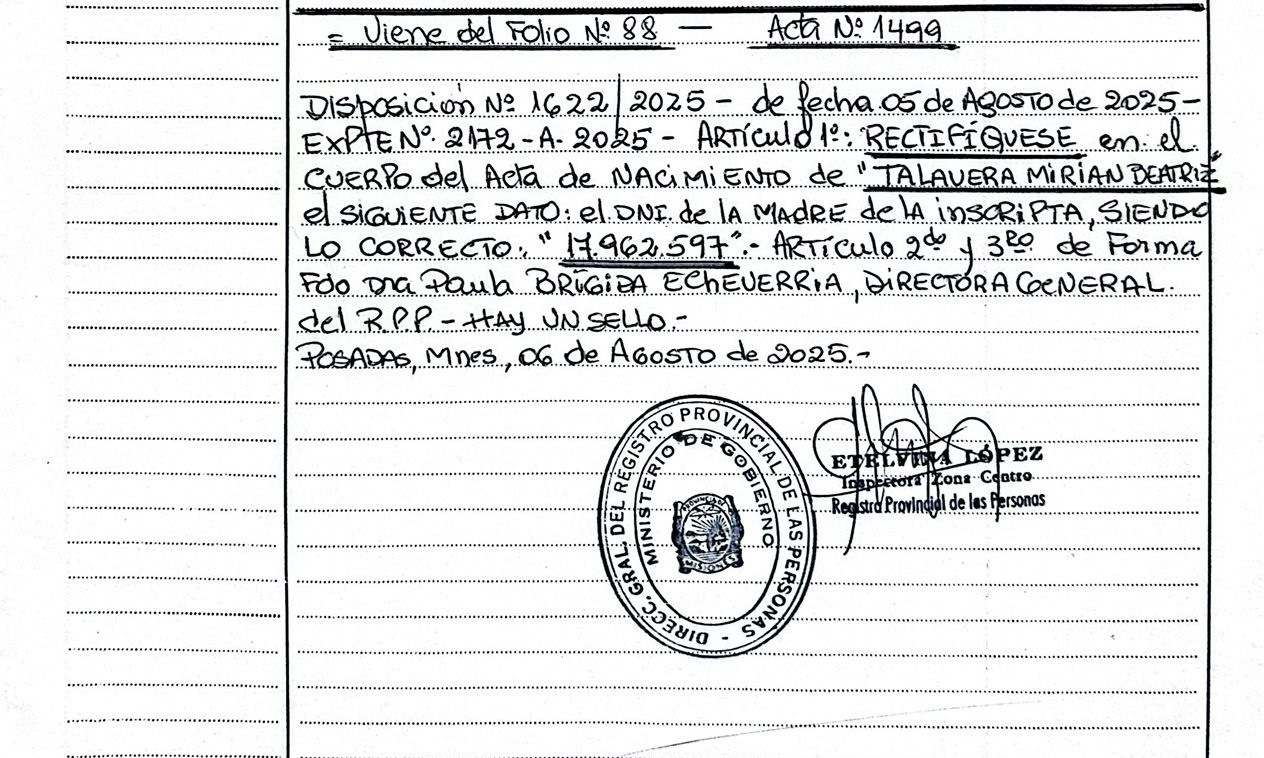 = Viene del Folio Nº 88 — Acta Nº 1499
Disposición Nº 1622/2025 - de fecha 05 de Agosto de 2025 -
EXPTE Nº. 2172 - A - 2025 - Artículo 1º: RECTIFÍQUESE en el
CUERPO del Acta de NACIMIENTO de "TALAVERA MIRIAN BEATRIZ"
el SIGUIENTE DATO: el DNI de la MADRE de la inscripta, SIENDO
LO CORRECTO: "17.962.597".- Artículo 2do y 3ro de Forma
Fdo Dra Paula BRÍGIDA ECHEVERRIA, DIRECTORA GENERAL.
del R.P.P. - HAY UN SELLO.-
POSADAS, Mnes, 06 de AGOSTO de 2025.-
DIRECC. GRAL. DEL REGISTRO PROVINCIAL DE LAS PERSONAS -
MINISTERIO DE GOBIERNO
PROVINCIA DE
MISIONES
ETELVINA LÓPEZ
Inspectora Zona Centro
Registro Provincial de las Personas